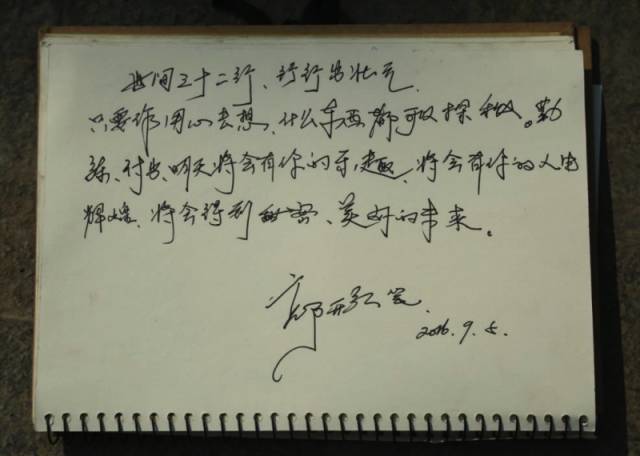 世间三十二行、行行出状元
只要你用心去想、什么东西都可以探秘。勤
练、付出、明天将会有你的乐趣、将会有你的人生
辉煌、将会得到甜密、美好的未来。
2016.9.5.